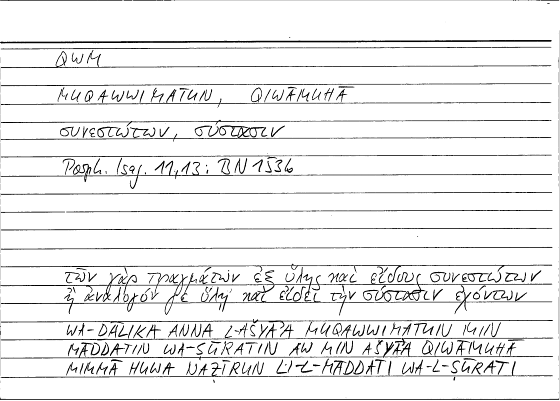 QWM
MUQAWWIMATUN, QIWĀMUHĀ
συνεστώτων, σύστασιν
Porph. Isag. 11,13; BN 1536
τῶν γὰρ πραγμάτων ἐξ ὕλης καὶ εἴδους συνεστώτων
ἢ ἀνάλογόν γε ὕλῃ καὶ εἴδει τὴν σύστασιν ἐχόντων
WA-ḎĀLIKA ANNA L-AŠYĀʾA MUQAWWIMATUN MIN
MĀDDATIN WA-ṢŪRATIN AW MIN AŠYĀʾA QIWĀMUHĀ
MIMMĀ HUWA NAẒĪRUN LI-L-MĀDDATI WA-L-ṢŪRATI